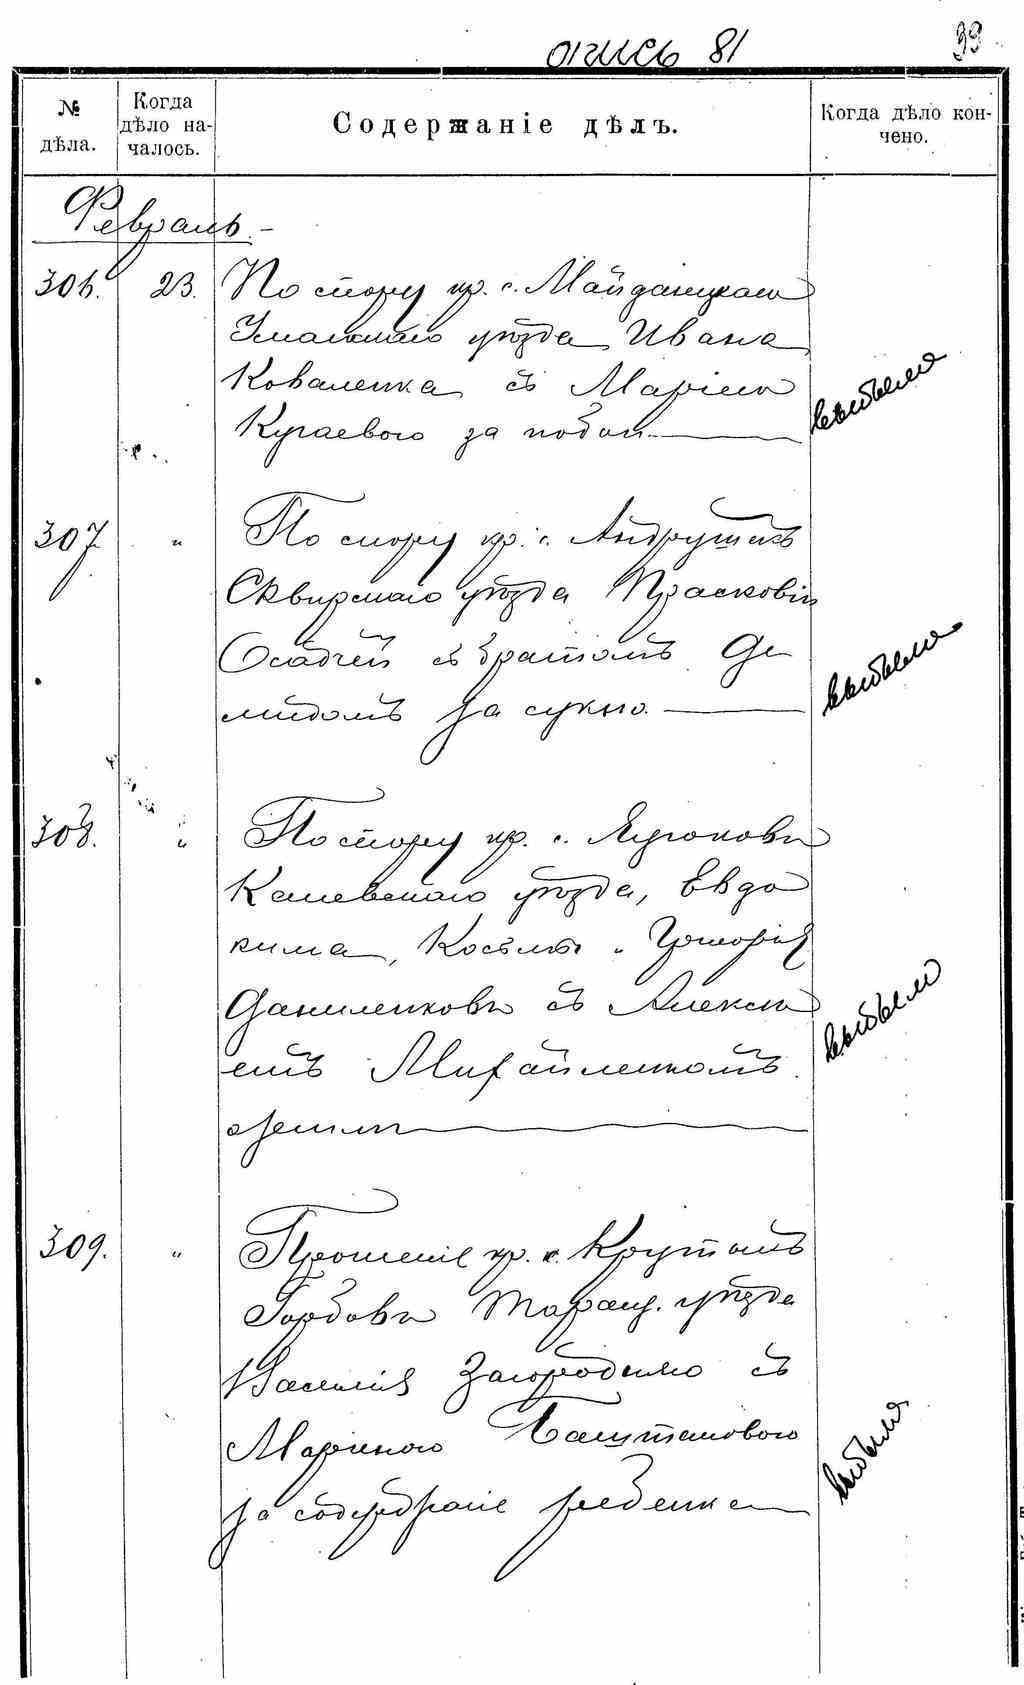 опись 81
99
№ дѣла.
Когда дѣло началось.
Содержаніе дѣлъ.
Когда дѣло кончено.
Февраль.
306. 23. По спору кр. с. Майданецкаго
Уманскаго уѣзда Ивана
Коваленка съ Маріею
за побои
выбыло
307 " По спору кр. с. Андрушекъ
Сквирскаго уѣзда Прасковіи
Осадчей съ братомъ Де
мидомъ за сукно.
выбыло
308. " По спору кр. с.
Каневскаго уѣзда, Евдо
кима, Косьмы и Григорія
Даниленковъ съ Алексѣ
емъ Михайленкомъ
о землѣ
выбыло
309. " Прошеніе кр. с. Крутыхъ
Горбовъ Таращ. уѣзда
Василія Загородняго съ
Мариною Баштановою
за содержаніе ребенка
выбыло